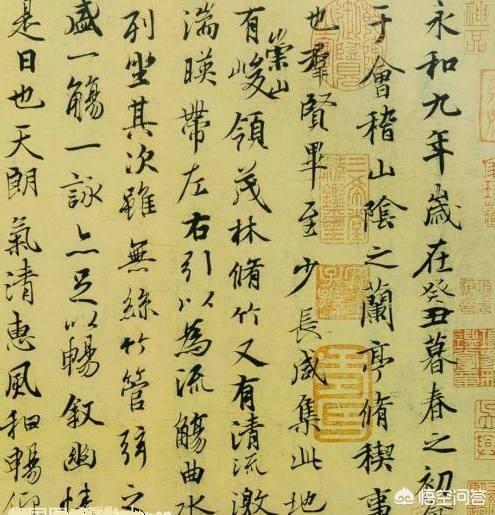 永和九年歲在癸丑暮春之初會
于會稽山陰之蘭亭脩稧事
也羣賢畢至少長咸集此地
有崇山峻領茂林脩竹又有清流激
湍暎帶左右引以為流觴曲水
列坐其次雖無絲竹管弦之
盛一觴一詠亦足以暢敘幽情
是日也天朗氣清惠風和暢仰
神品
悟空问答